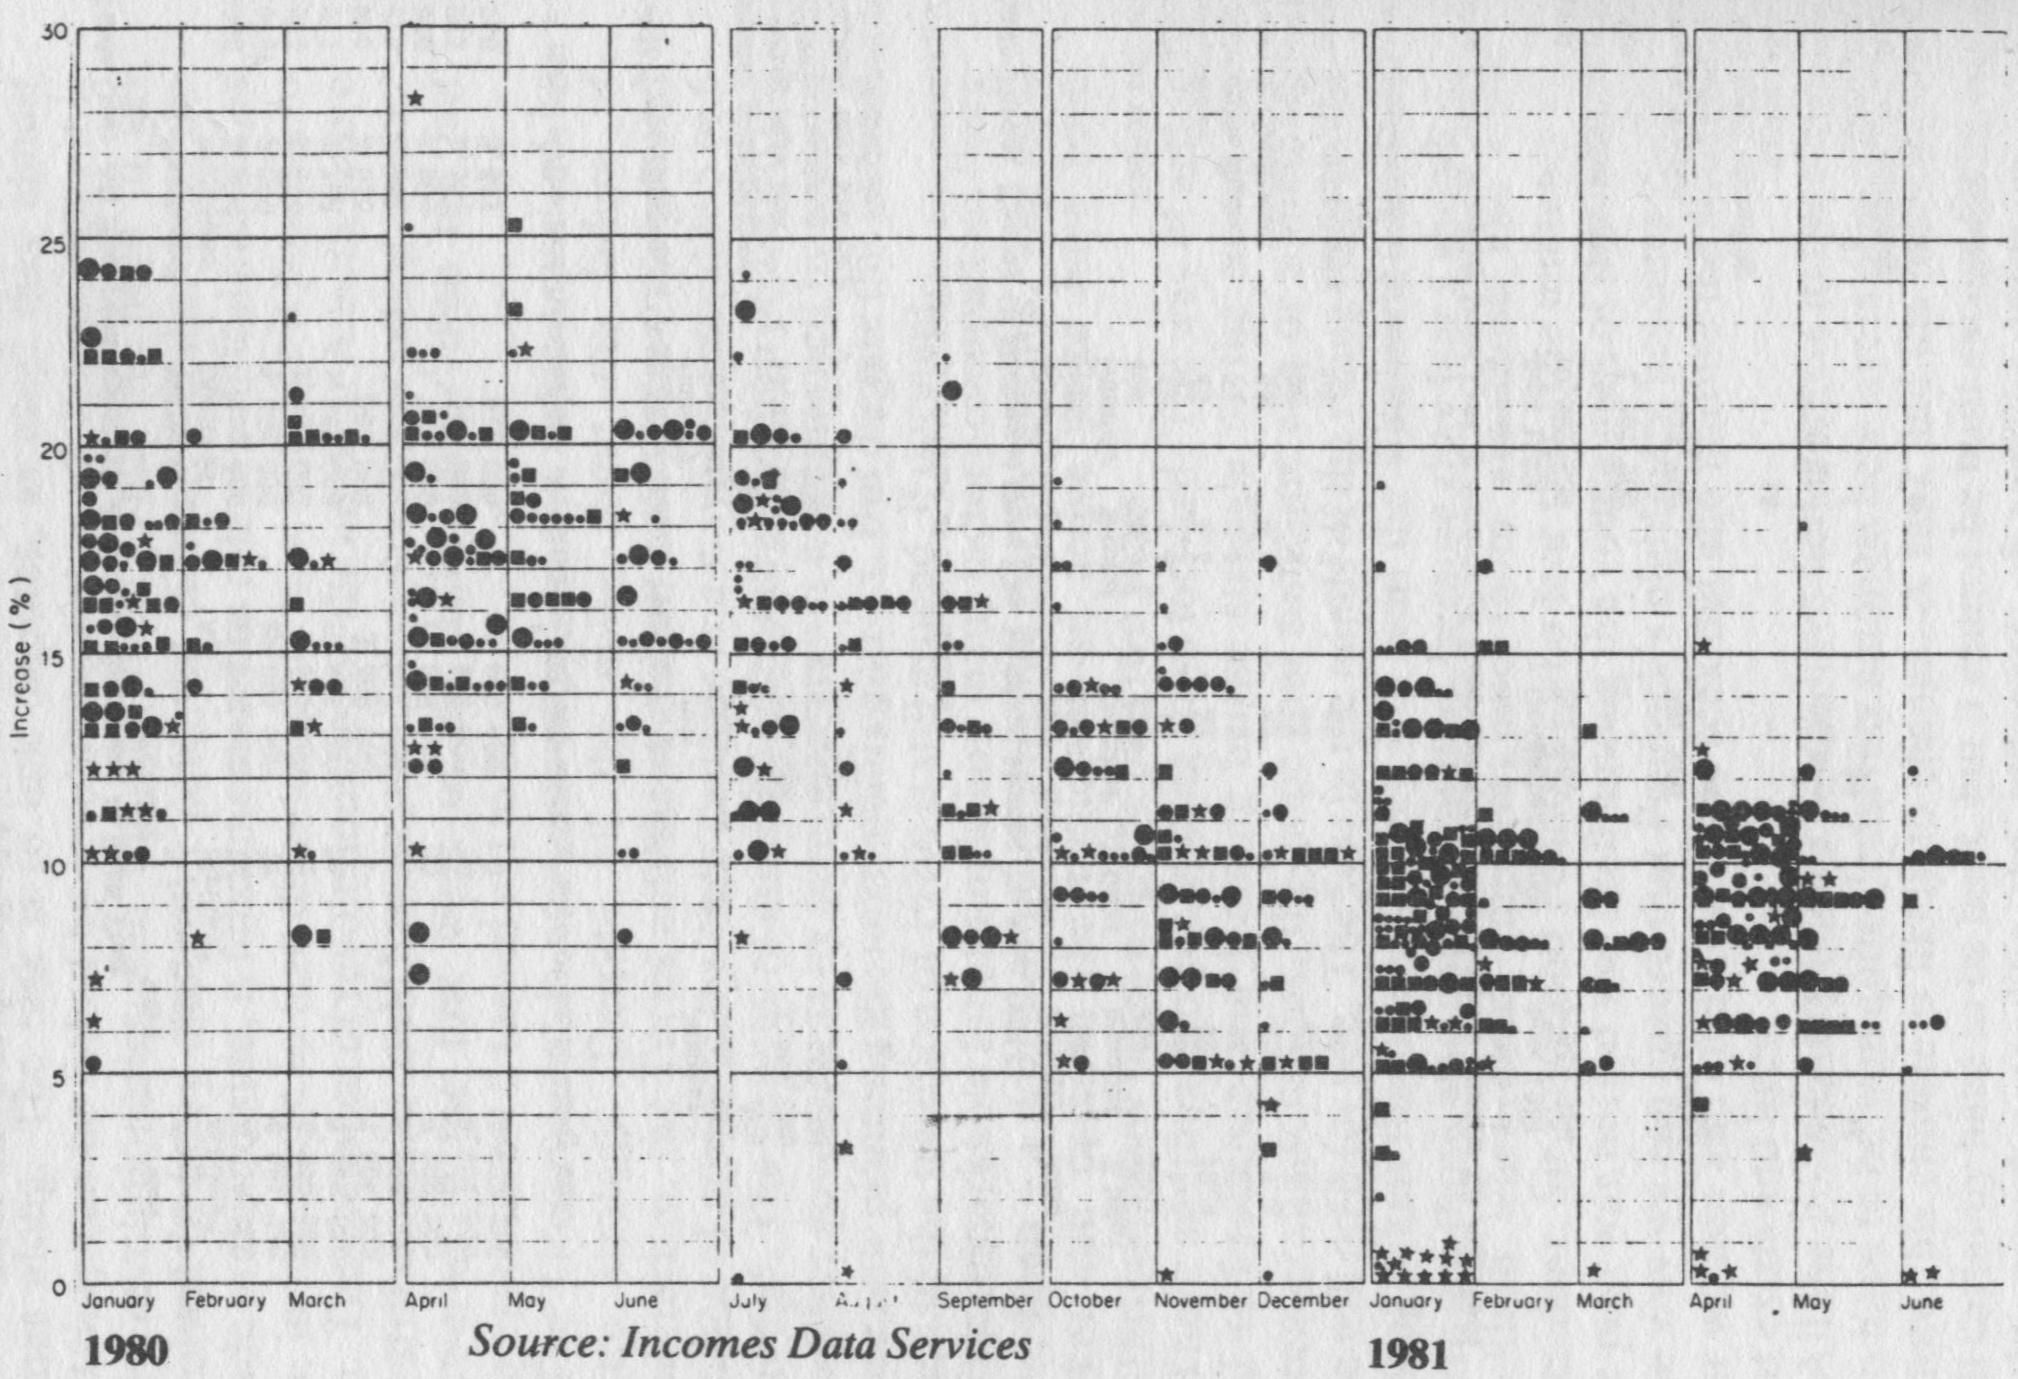 30
25
20
15
10
5
0
Increase (%)
January February March April May June July September October November December January February March April May June
1980 Source: Incomes Data Services 1981